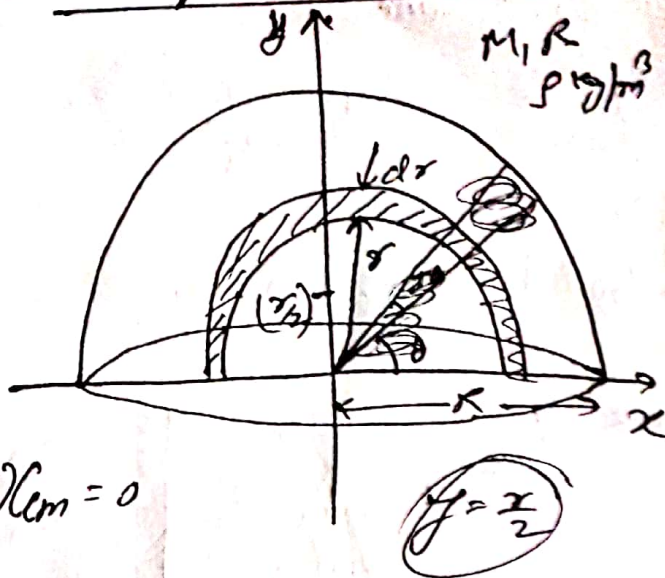 y
M, R
ρ kg/m³
dr
r
(r/2)
θ
R
x
Xcm = 0
y = x/2